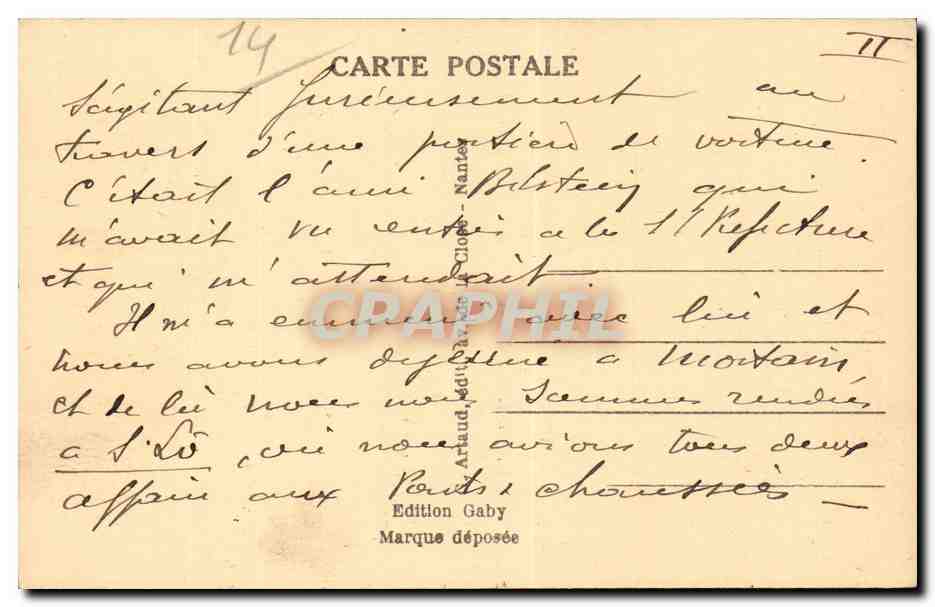 14
II
CARTE POSTALE
s'agitant furieusement au
travers d'une portière de voiture.
C'était l'ami qui
m'avait vu entrer a la S/ Préfecture
et qui m'attendait.
Il m'a emmené avec lui et
nous avons déjeuné a Mortain
et de là nous nous sommes rendus
a St Lô, où nous avions tous deux
affaire aux Ponts & chaussées —
Artaud, édit., av. de la Close - Nantes
Edition Gaby
Marque déposée
CPAPHIL